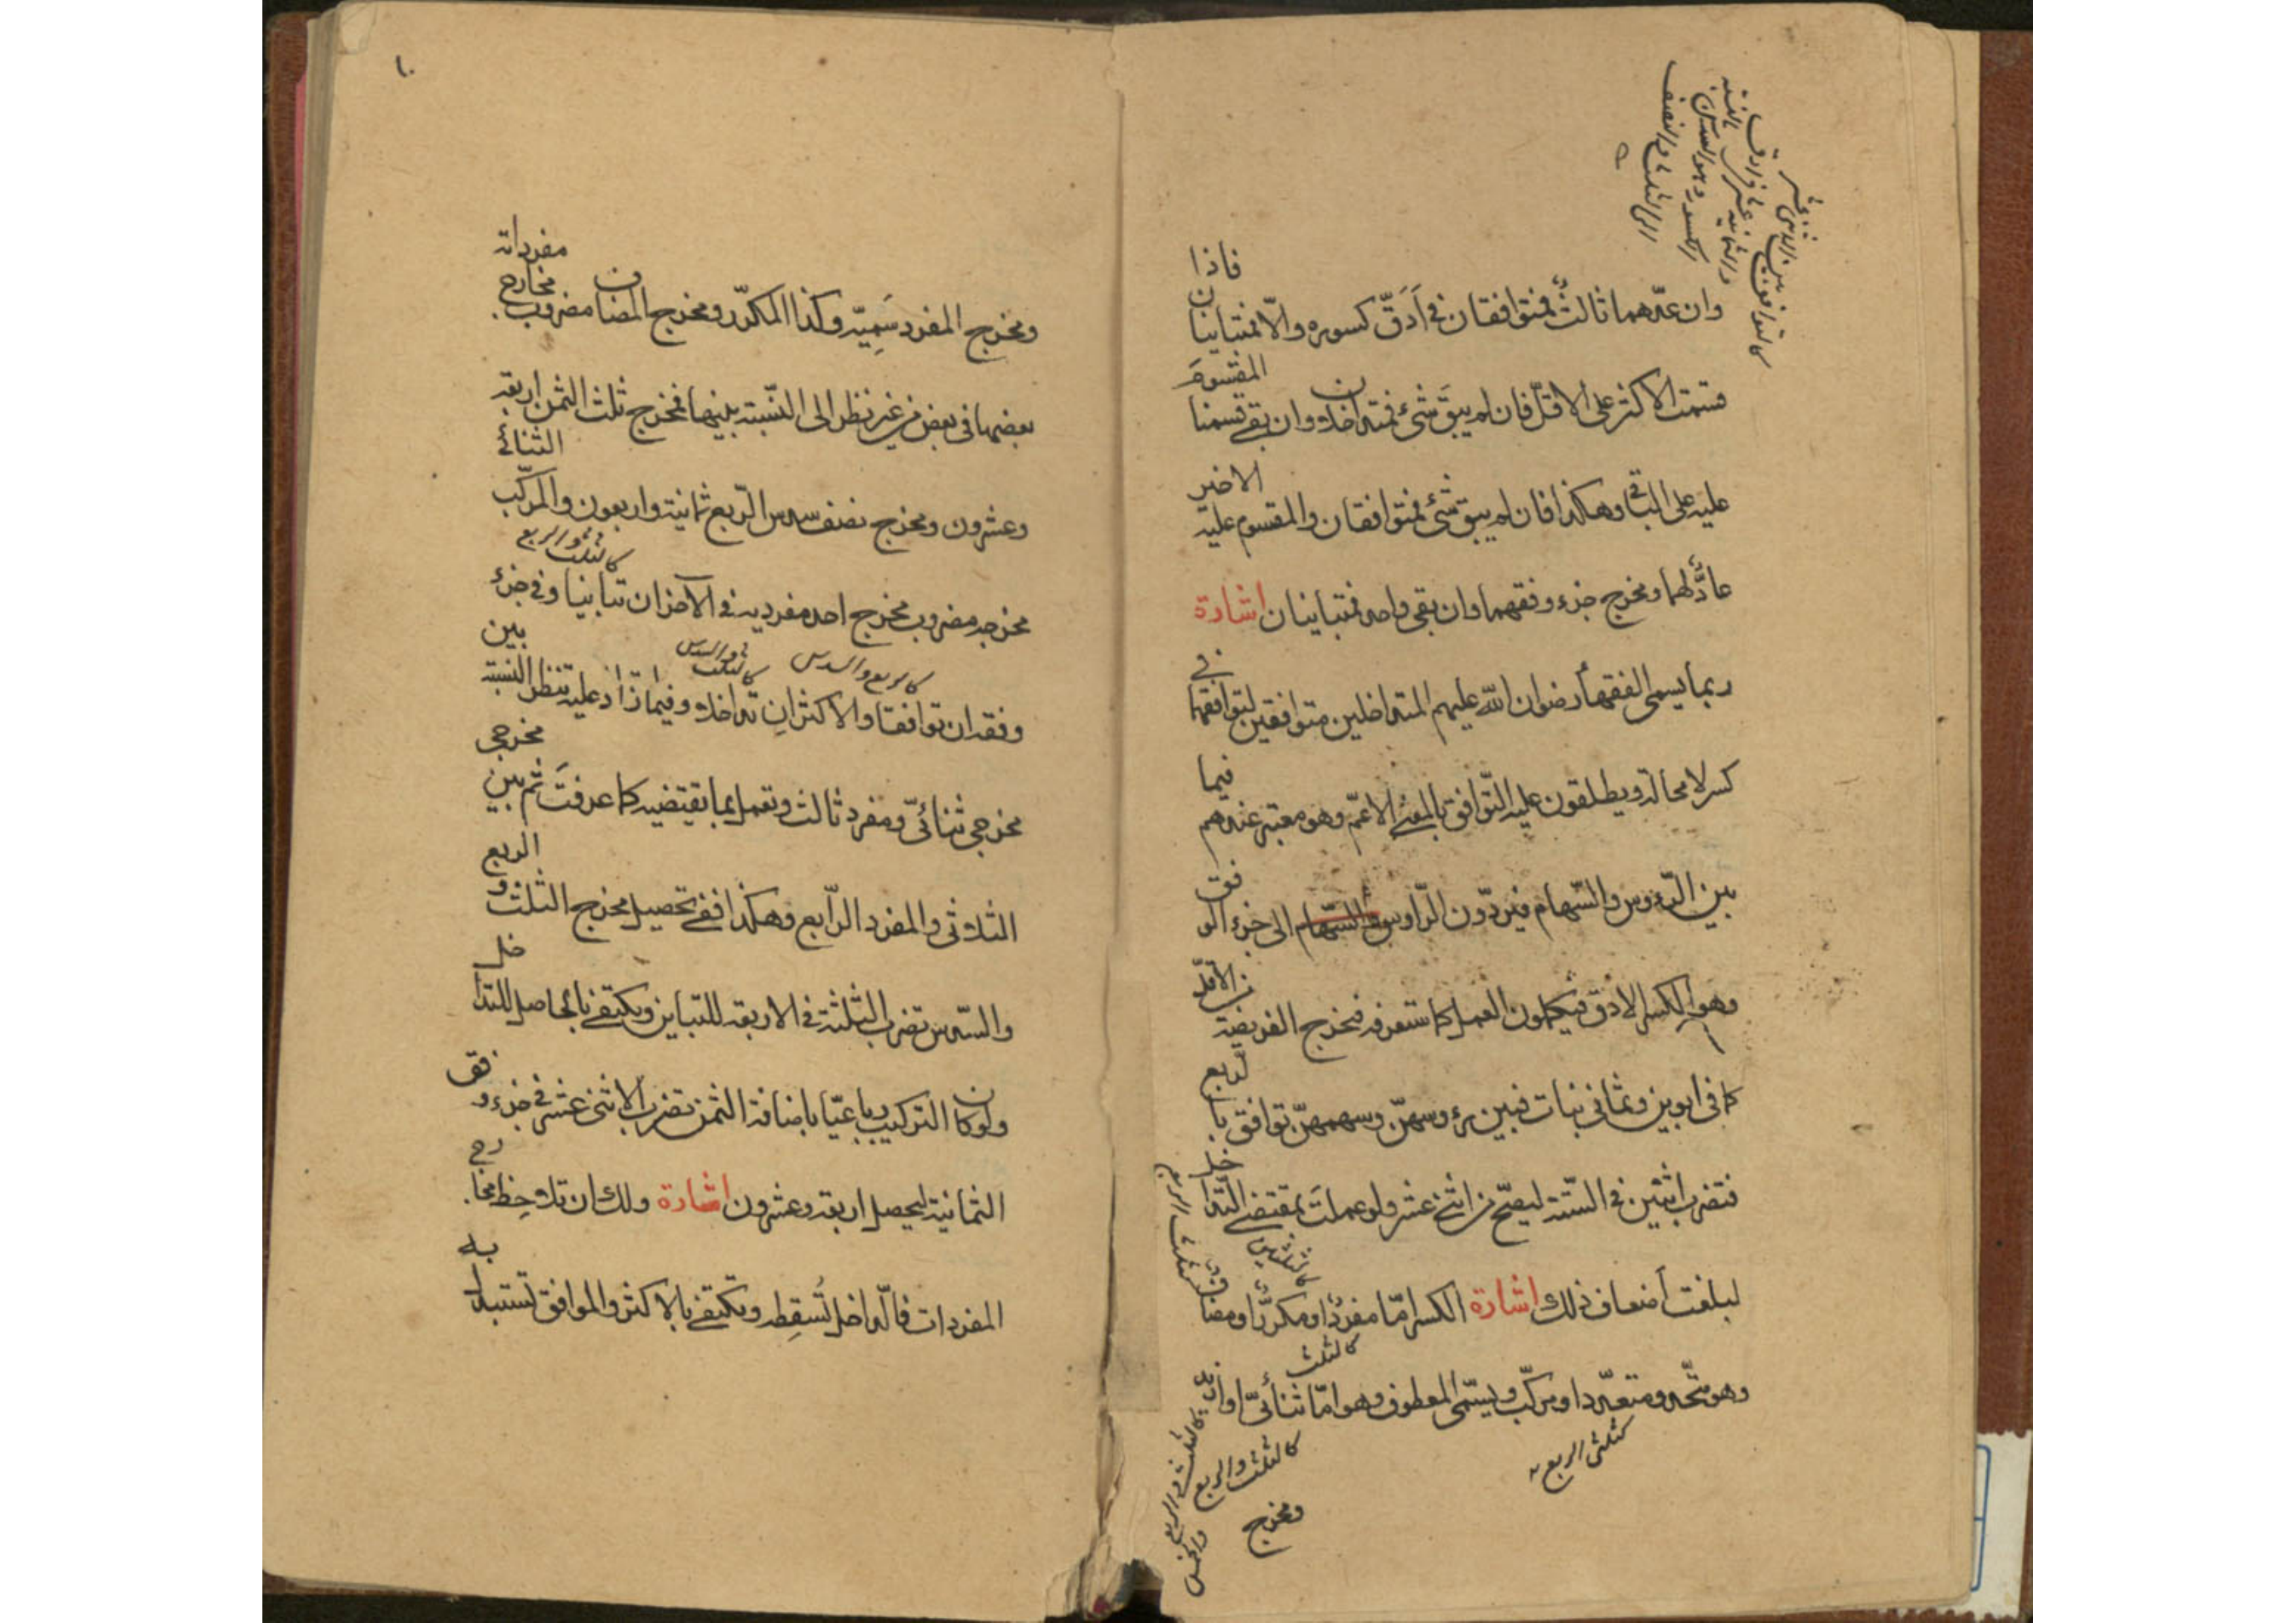 وان عدّهما ثالثٌ فمتوافقان في اَدَقّ كسوره والّا فمتباينان فاذا
قسمت الاكثر على الاقلّ فان لم يبقَ شئ فمتداخلان وان بقي قسمنا المقسومَ
عليه على الباقي وهكذا فان لم يبق شئ فمتوافقان والمقسوم عليه الاخير
عادٌّ لهما ومخرج جزء وفقهما وان بقى واحد فمتباينان اشارة
ربما يسمى الفقهاء رضوان الله عليهم المتداخلين متوافقين لتوافقهما في
كسر لا محالة ويطلقون عليه التّوافق بالمعنى الاعمّ وهو معتبر عندهم فيما
بين الرّءوس والسّهام فيردّون الرّاوس السّهام الى جزء الوفق
وهو الكسر الادقّ فيكملون العمل كما ستعرفه فتخرج الفريضة من الاقلّ
كما في ابوين وثماني بنات فبين رءوسهنّ وسهمهنّ توافق بالربع
فتضرب اثنين في السّتة ليصّح من اثنى عشر ولو عملتَ بمقتضى التّداخل
لبلغت اَضعاف ذلك اشارة الكسر امّا مفردٌ او مكررٌ او مضاف
كالثلث
كالثلثين
كثلث الربع
وهو متّحد ومتعدّد او مركّب ويسمّى المعطوف وهو امّا ثنائىّ او ازيد
كثلثى الربع
كالثلث والربع
كالثلث والربع والخمس
ومخرج
١٠
ومخرج المفرد سَمِيّه وكذا المكرّر ومخرج المضاف مضروب مخارج مفرداته
بعضها في بعض من غير نظر الى النّسبة بينها فمخرج ثلث الثمن اربعة
وعشرون ومخرج نصف سدس الرّبع ثمانية واربعون والمركّب الثنائى
كالثلث والربع
مخرجه مضروب مخرج احد مفرديه في الآخر ان تباينا وفي جزء
كالربع والسدس
كالثلث والسدس
وفقه ان توافقا والاكثر اِن تداخلا وفيما زاد عليه تنظر النسبة بين
مخرجى ثنائىّ ومفرد ثالث وتعمل بما يقتضيه كما عرفتَ ثم بين مخرجى
الثلاثى والمفرد الرّابع وهكذا ففي تحصيل مخرج الثلث والربع
والسّدس تضرب الثلثة في الاربعة للتباين ويكتفى بالحاصل للتداخل
ولو كان التركيب رباعيّا باضافة الثمن تضرب الاثنى عشر في جزء وفق
الثمانية ليحصل اربعة وعشرون اشارة ولك ان تلاحِظ مخارج
المفردات فالدّاخل تُسقِطه وتكتفى بالاكثر والموافق تستبدل به